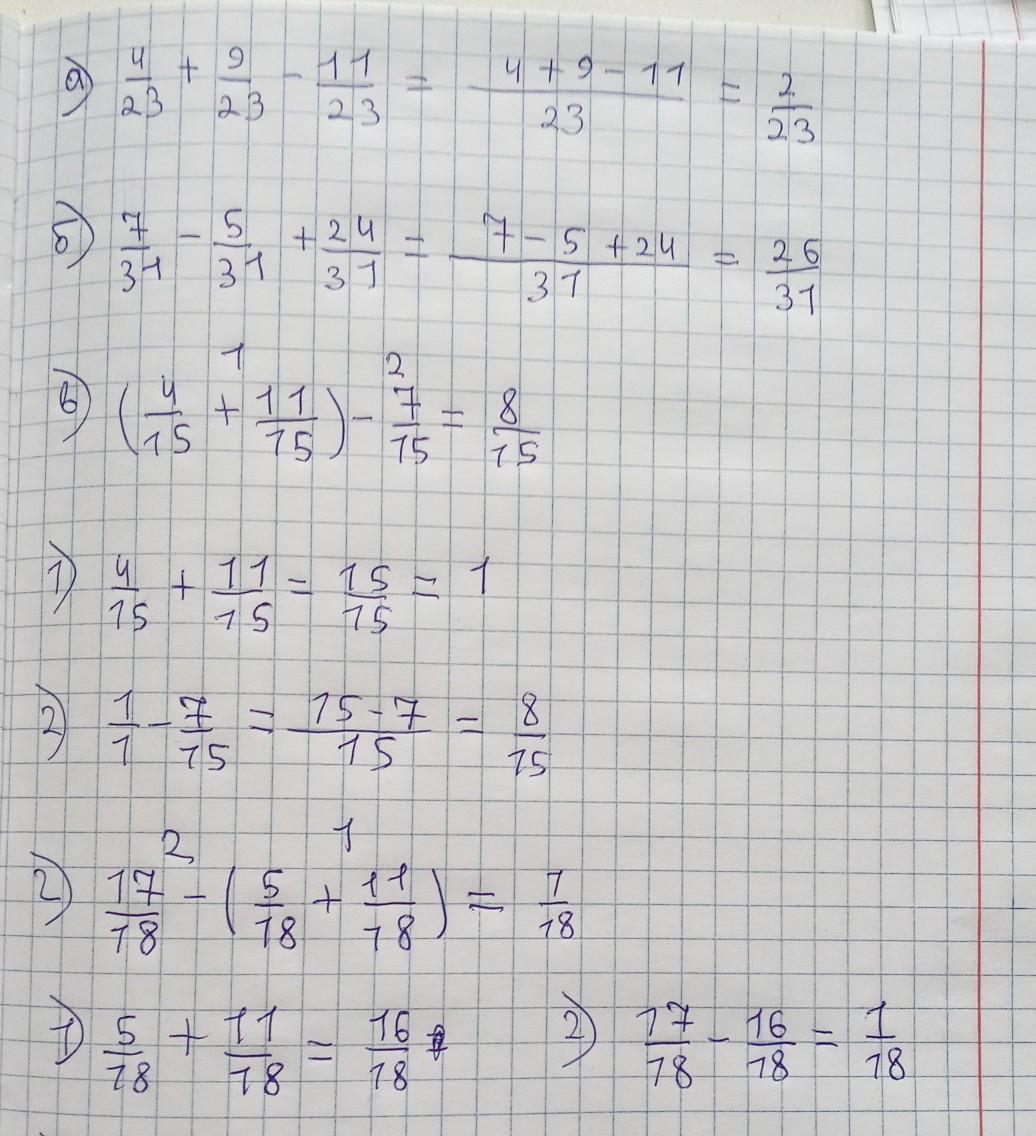 а) 4/23 + 9/23 - 11/23 = (4 + 9 - 11)/23 = 2/23
б) 7/31 - 5/31 + 24/31 = (7 - 5 + 24)/31 = 26/31
1 2
в) (4/15 + 11/15) - 7/15 = 8/15
1) 4/15 + 11/15 = 15/15 = 1
2) 1/1 - 7/15 = (15 - 7)/15 = 8/15
2 1
г) 17/18 - (5/18 + 11/18) = 1/18
1) 5/18 + 11/18 = 16/18 2) 17/18 - 16/18 = 1/18